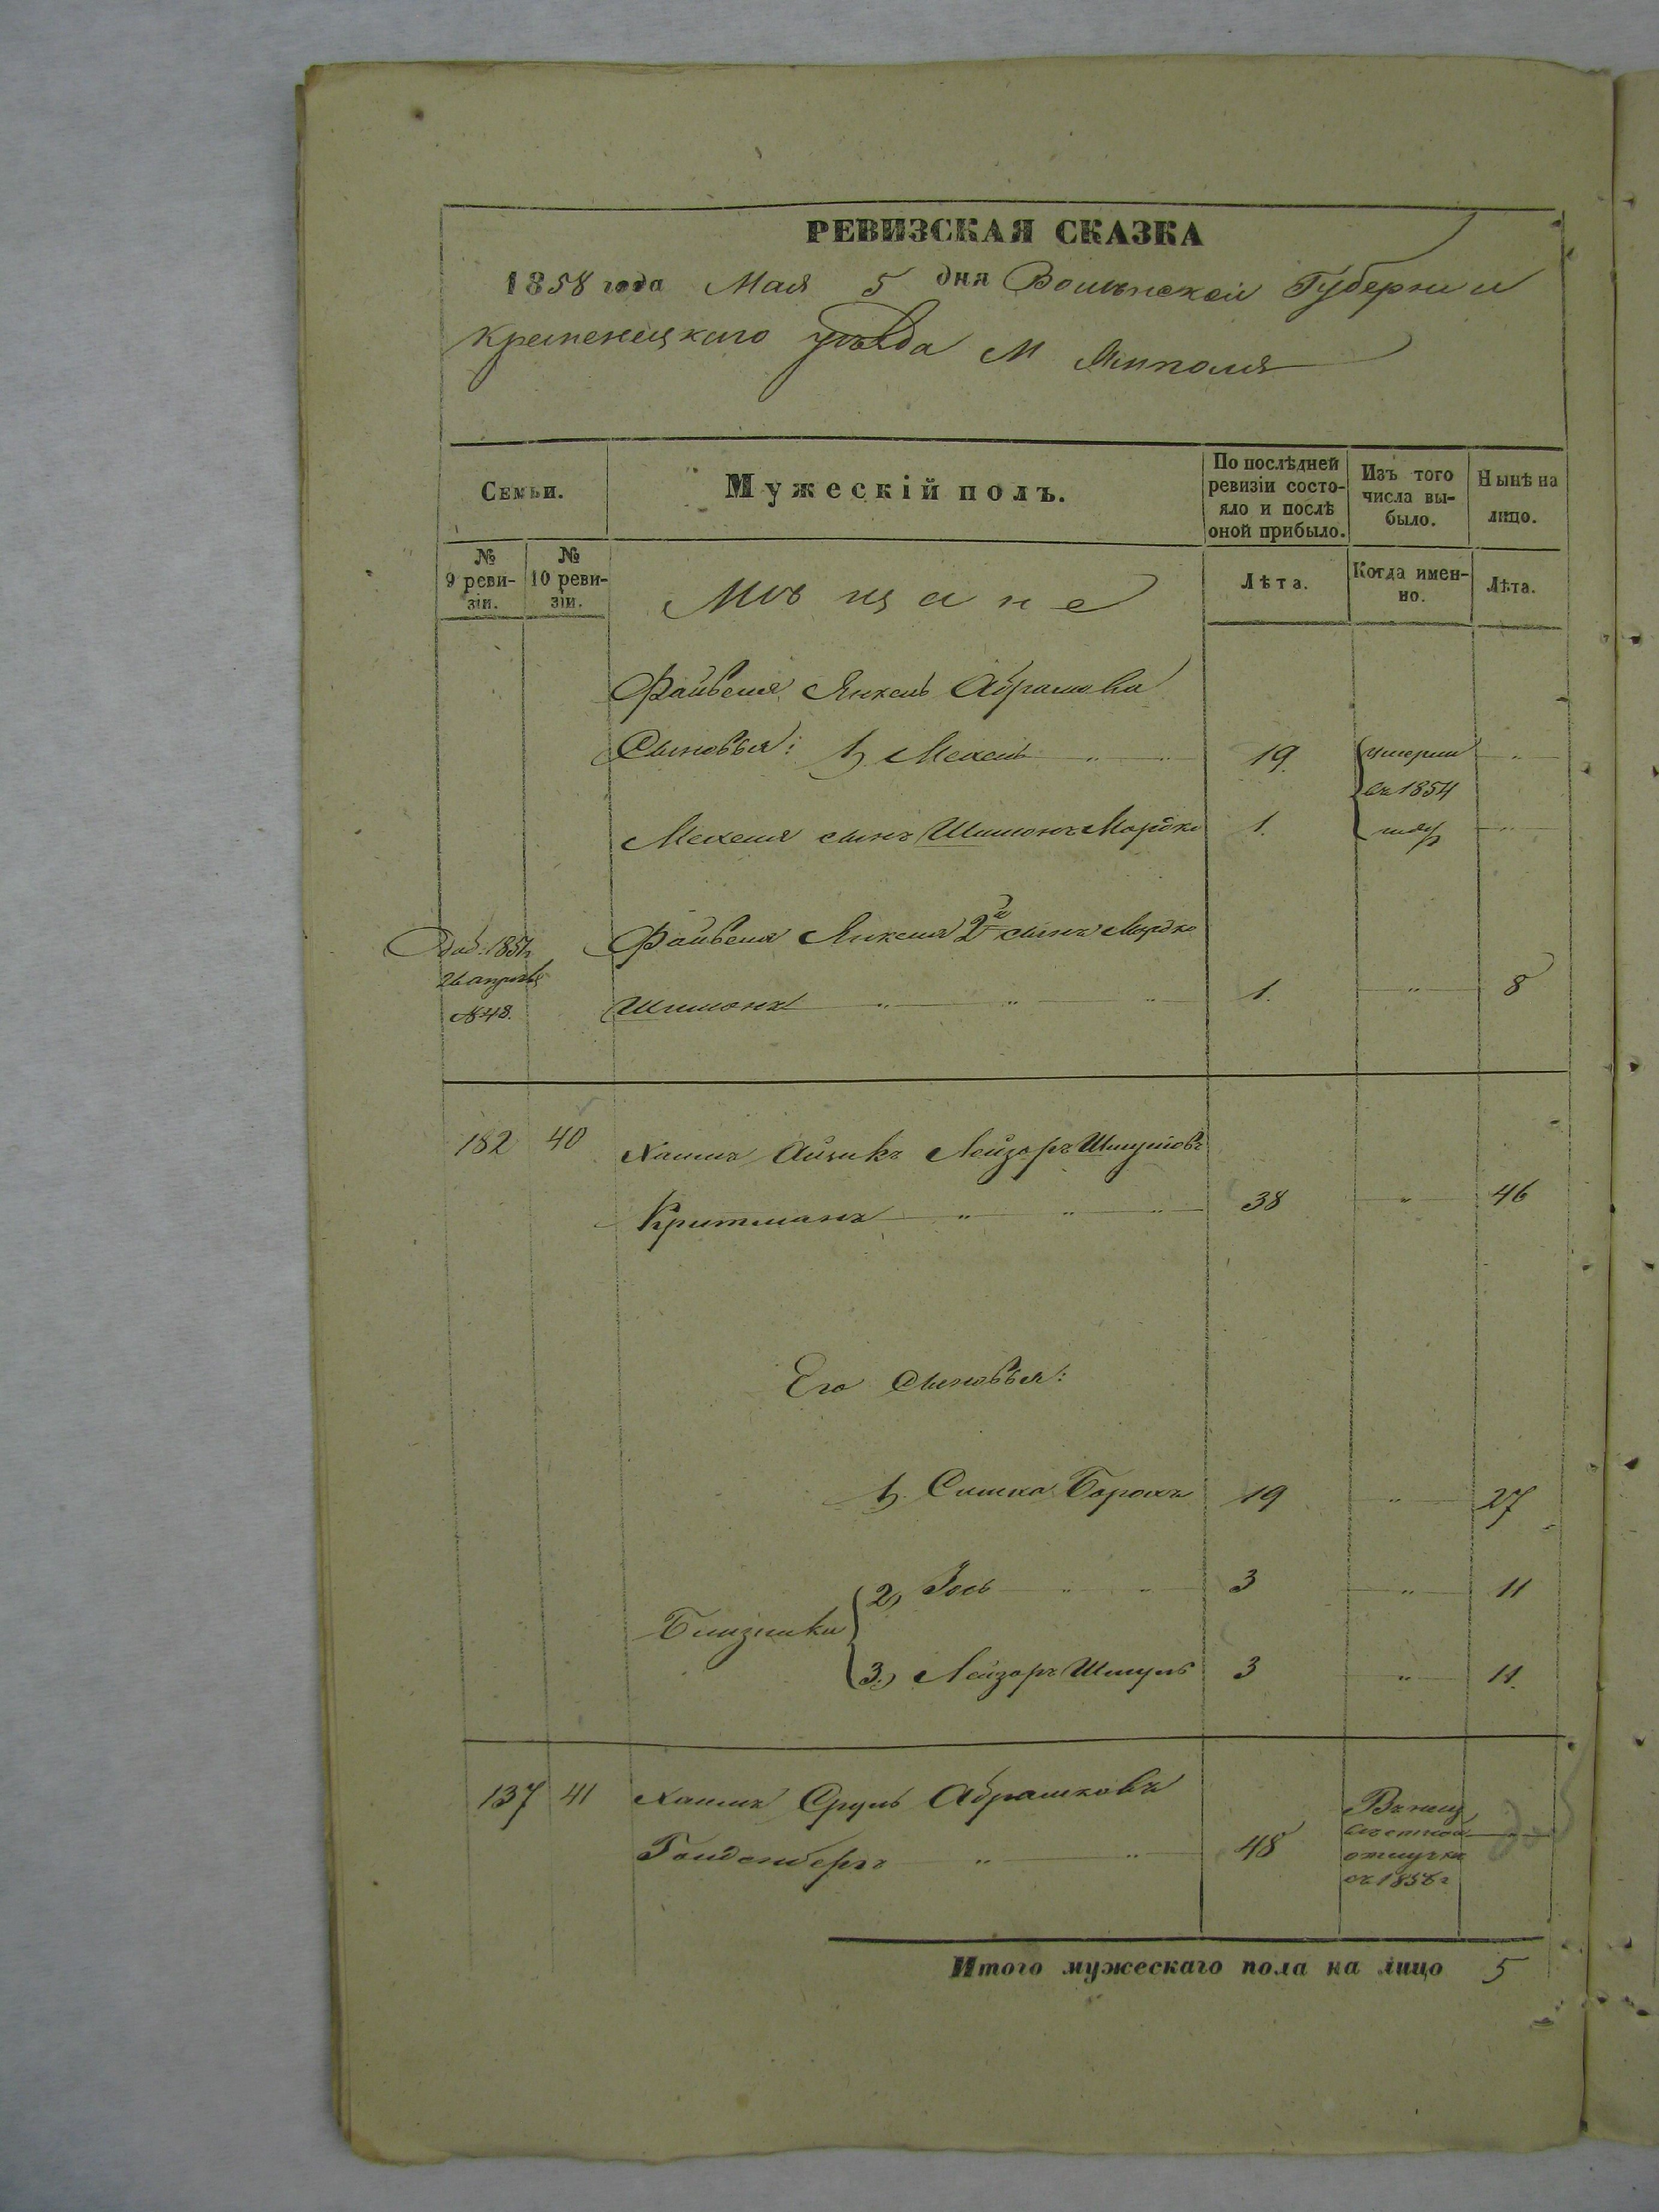 РЕВИЗСКАЯ СКАЗКА
1858 года Мая 5 дня Волынской Губернии
Кременецкаго уѣзда М Ямполя
Семьи.
Мужескій полъ.
По послѣдней ревизіи состояло и послѣ оной прибыло.
Изъ того числа выбыло.
Нынѣ на лицо.
№ 9 ревизіи.
№ 10 ревизіи.
Мѣщане
Лѣта.
Когда именно.
Лѣта.
Файвеля Янкель Абрамова
Сыновья: 1, Мехель 19. умерли
съ 1854
Мехеля сынъ Шимонъ Мордко 1.
Файвеля Янкеля 2й сынъ Мордко
1851г
26 апрѣля
№ 48.
Шимонъ 1. 8
182 40 Хаимъ Айзикъ Лейзоръ Шмулiовъ
Критманъ 38 46
Его Сыновья:
1, Симха Борохъ 19 27
2, Іось 3 11
Близнаки
3, Лейзоръ Шмуль 3 11.
137 41 Хаимъ Сруль Абрашковъ
Голденбергъ 48
отлучкѣ
съ 1858г
Итого мужескаго пола на лицо 5